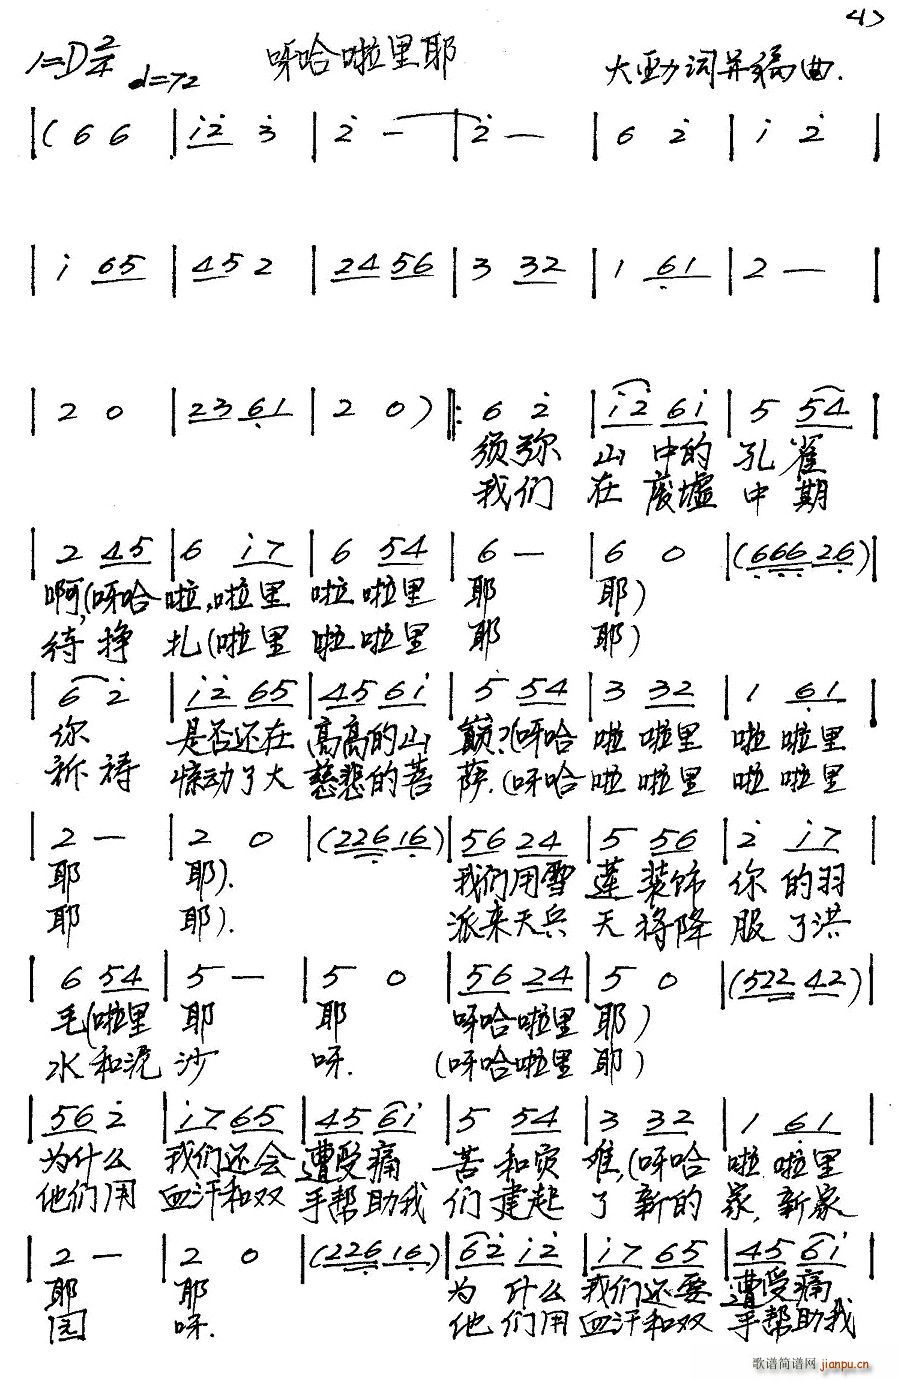 <1>
1=D 2/4 d=72 呀哈啦里耶 大勐词并编曲.
|( 6 6 | i̇2̇ 3̇ | 2̇ — | 2̇ — | 6 2̇ | i̇ 2̇ |
| i̇ 65 | 45 2 | 24 56 | 3 32 | 1 6̣1 | 2 — |
| 2 0 | 23 6̣1 | 2 0 ) ‖: 6 2̇ | i̇2̇ 6i̇ | 5 54 |
须弥 山 中的 孔 雀
我们 在 废墟 中 期
| 2 45 | 6 i̇7 | 6 54 | 6 — | 6 0 | (6̣6̣6̣ 26̣)|
啊,(呀哈 啦,啦里 啦 啦里 耶 耶)
待 挣 扎(啦里 啦 啦里 耶 耶)
| 6 2̇ | i̇2̇ 65 | 45 6i̇ | 5 54 | 3 32 | 1 6̣1 |
你 是否还在 高高的山 巅?(呀哈 啦 啦里 啦 啦里
祈 祷 惊动了大 慈悲的菩 萨.(呀哈 啦 啦里 啦 啦里
| 2 — | 2 0 | (226̣ 16̣)| 56 24 | 5 56 | 2̇ i̇7 |
耶 耶). 我们用雪 莲 装饰 你 的羽
耶 耶). 派来天兵 天 将降 服 了洪
| 6 54 | 5 — | 5 0 | 56 24 | 5 0 | (522 42)|
毛(啦里 耶 耶 呀哈啦里 耶)
水 和泥 沙 呀. (呀哈啦里 耶)
| 56 2̇ | i̇7 65 | 45 6i̇ | 5 54 | 3 32 | 1 6̣1 |
为什么 我们还会 遭受痛 苦 和灾 难,(呀哈 啦 啦里
他们用 血汗和双 手帮助我 们 建起 了 新的 家,新家
| 2 — | 2 0 | (226̣ 16̣)| 62̇ i̇2̇ | i̇7 65 | 45 6i̇ |
耶 耶 为 什么 我们还要 遭受痛
园 呀. 他 们用 血汗和双 手帮助我
歌谱简谱网 jianpu.cn